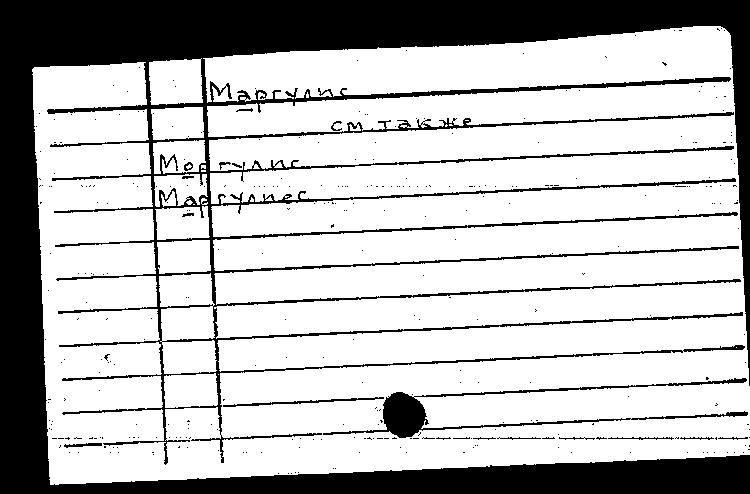 Маргулис
см. также
Моргулис
Маргулиес